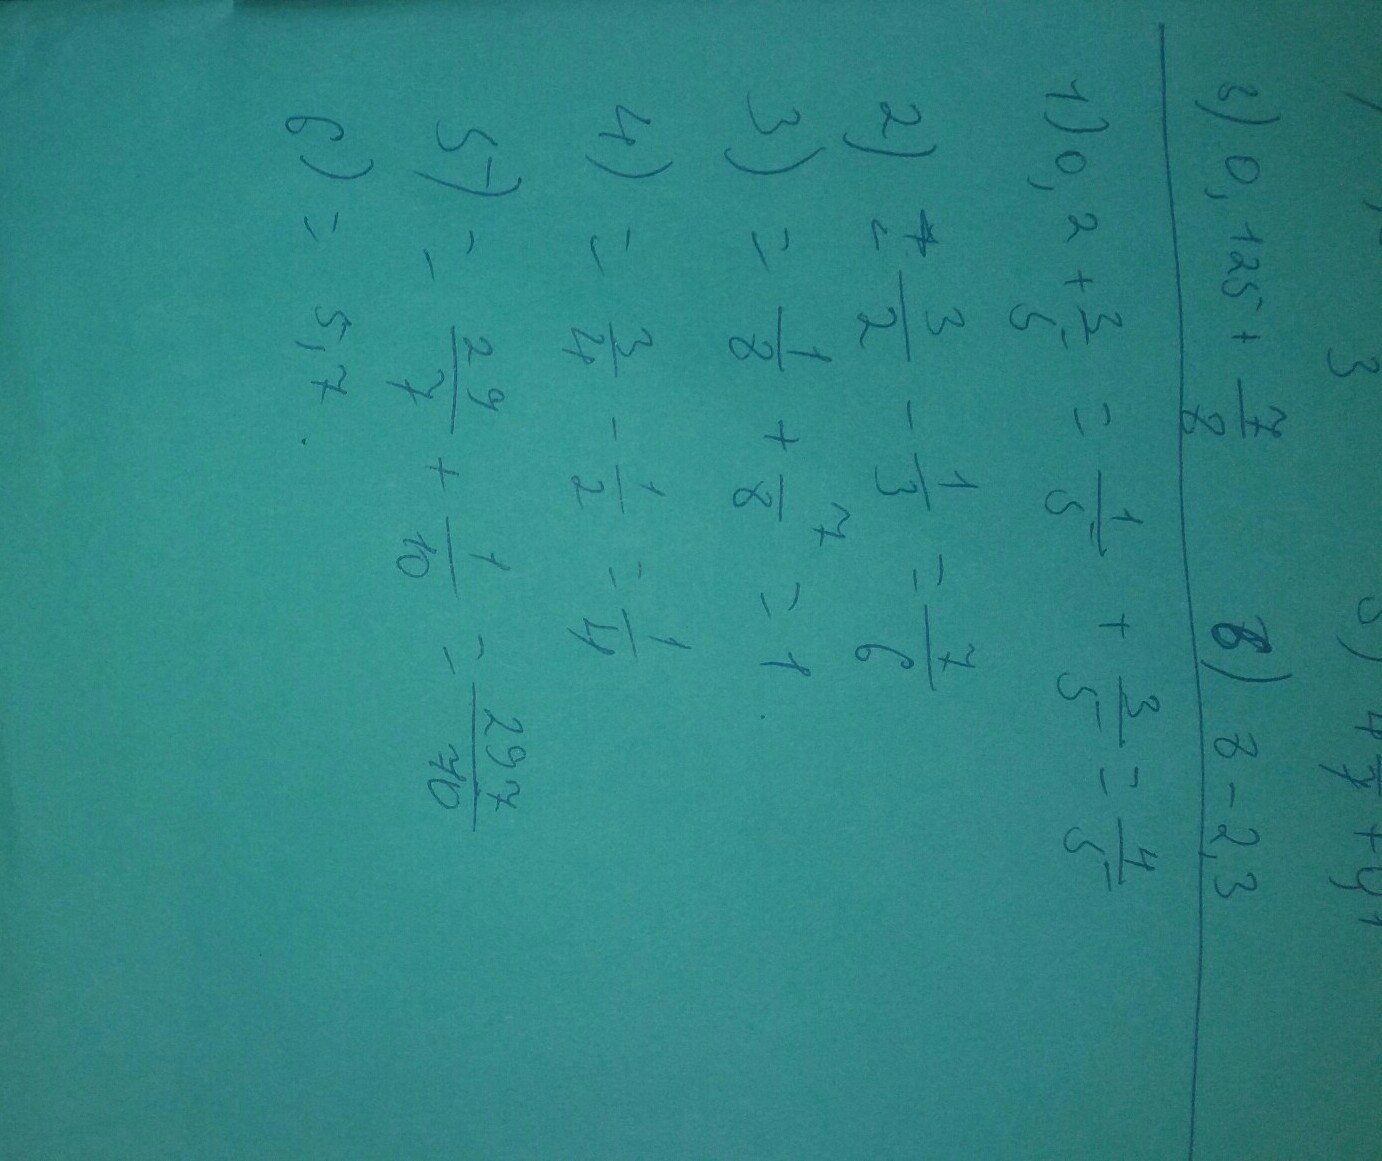 3) 0,125 + 7/8   6) 8 - 2,3
1) 0,2 + 3/5 = 1/5 + 3/5 = 4/5
2) = 3/2 - 1/3 = 7/6
3) = 1/8 + 7/8 = 1
4) = 3/4 - 1/2 = 1/4
5) = 29/7 + 1/10 = 297/70
6) = 5,7.